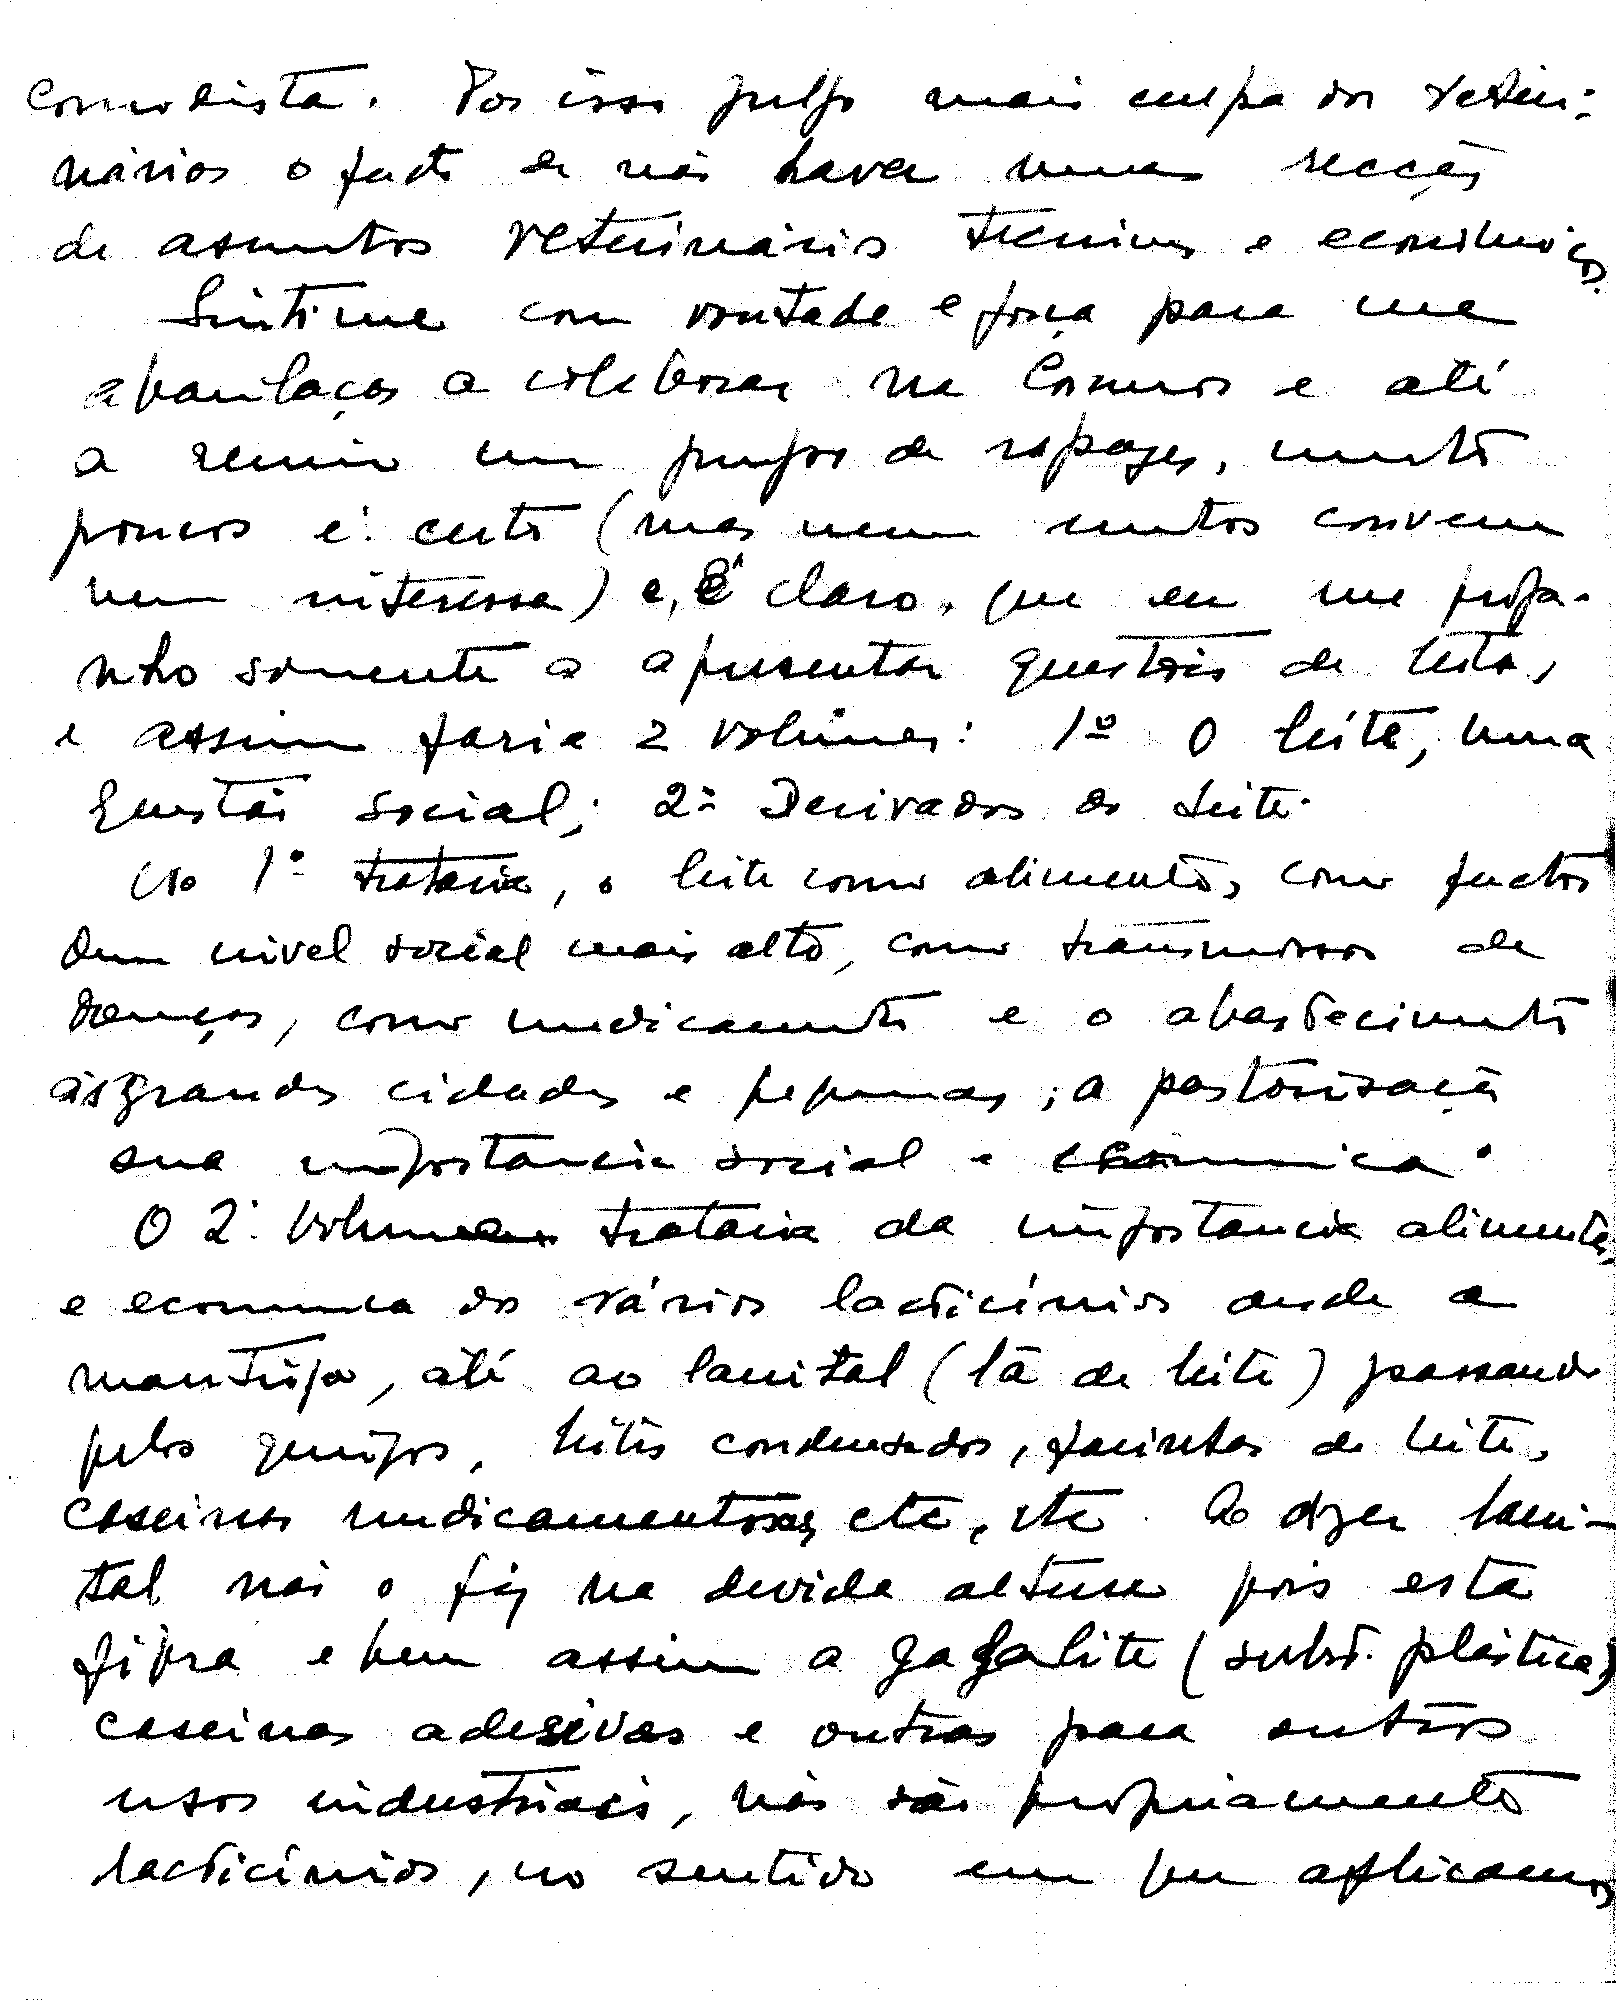 comodista. Por isso julgo mais culpa dos veteri-
nários o facto de não haver uma secção
de assuntos veterinários tecnicos e económicos.
Sinti-me com vontade e força para me
abalançar a colaborar na Cosmos e até
a reunir um grupo de rapazes, muito
poucos é certo (mas nem muitos convem
nem interessa) e, é claro, que eu me propu-
nho somente a apresentar questões de leite,
e assim faria 2 volumes: 1º O leite, uma
questão social; 2º Derivados do Leite.
No 1º trataria, o leite como alimento, como factor
dum nivel social mais alto, como transmissor de
doenças, como medicamento e o abastecimento
às grandes cidades e pequenas; a pastorisação
sua importancia social e economica.
O 2º volume trataria da importancia alimentar,
e economica dos vários lacticínios desde a
manteiga, até ao lanital (lã de leite) passando
pelos queijos, leites condensados, farinhas de leite,
caseinas medicamentosas, etc, etc. Ao dizer lani-
tal não o fiz na devida altura pois esta
fibra e bem assim a galalite (subst. plástica)
caseinas adesivas e outras para outros
usos industriais, não são propriamente
lacticínios, no sentido em que aplicamos